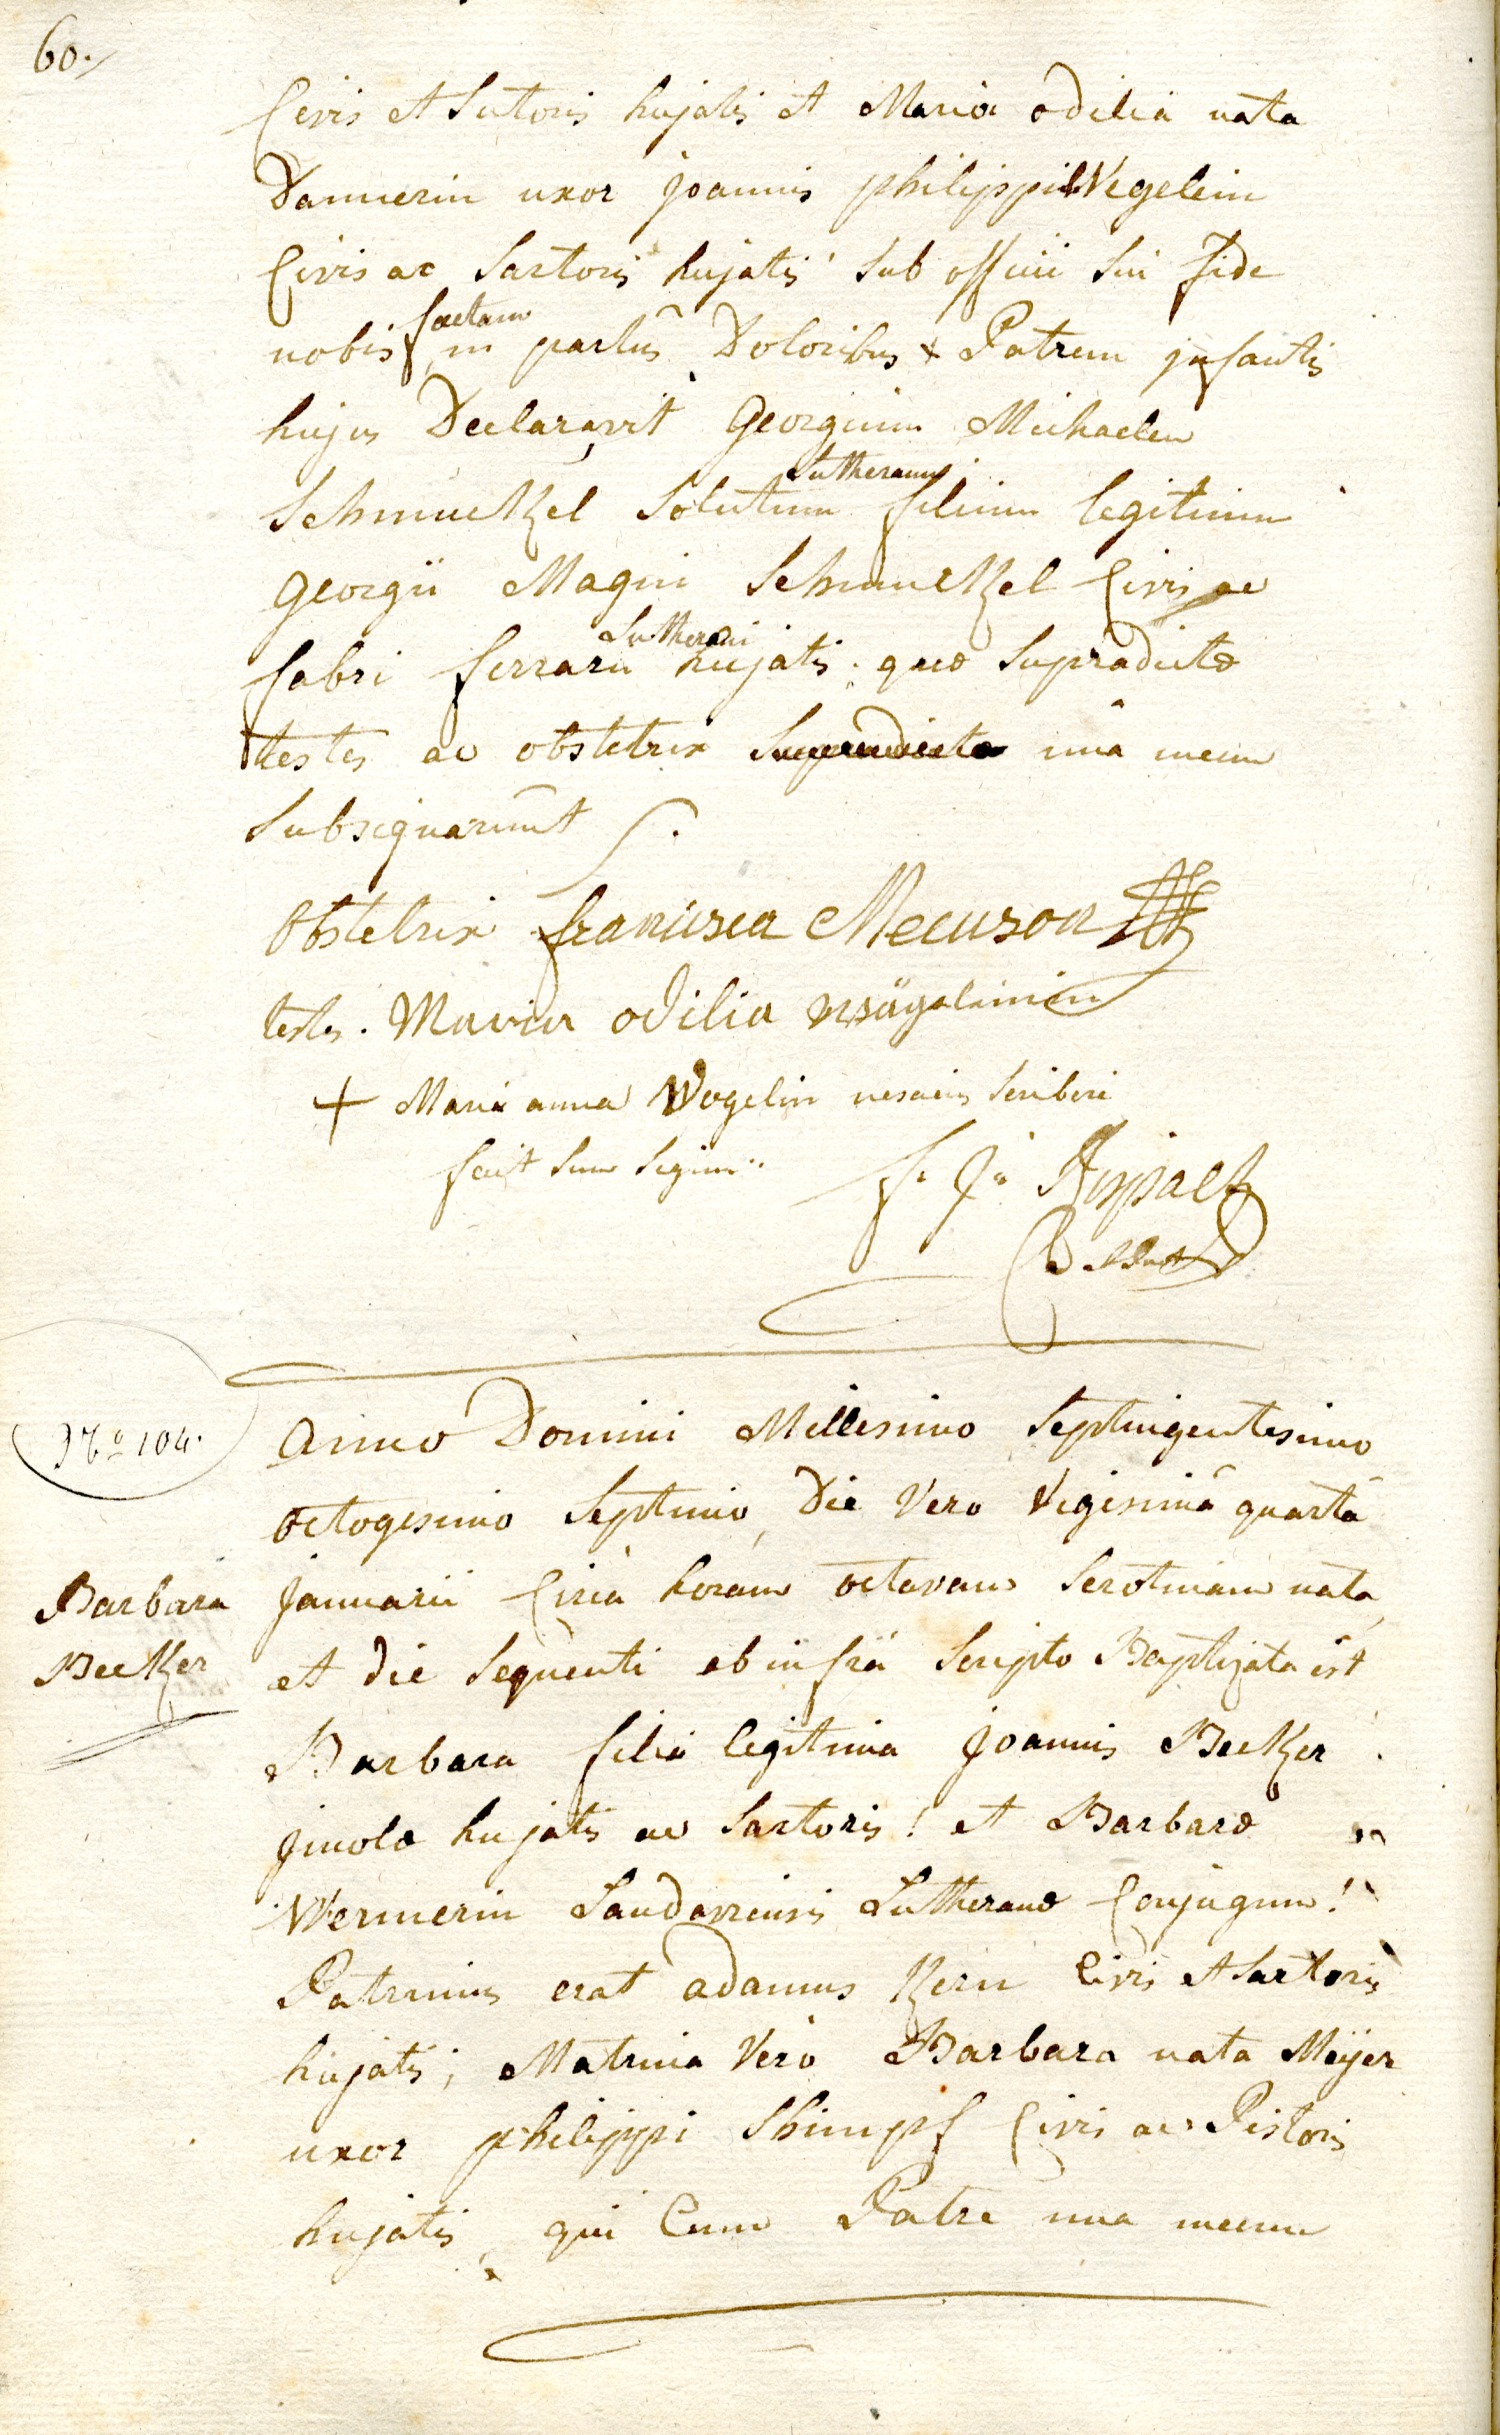 60.
Civis et Sutoris hujatis et Maria odilia nata
Dannerin uxor joannis philippi Wegelein
Civis ac Sartoris hujatis sub officii sui fide
factam
nobis in partûs Doloribus + Patrem jnfantis
hujus Declaravit Georgium Michaelem
Lutheranum
Schmuckel Solutum filium legitimum
Georgii Magni Schmuckel Civis ac
Lutherani
fabri ferrarii hujatis. quæ supradictæ
testes ac obstetrix unâ mecum
Subsignarunt
Obstetrix francisca Meeuson
testes. Maria odilia wägeleinin
+ Maria anna Wogelin nesciens scribere
fecit suum signum
Nº 104.
Barbara
Becker
Anno Domini Millesimo Septingentesimo
octogesimo Septimo, Die Vero Vigesimâ quartâ
januarii Circà horam octavam Serotinam nata
et die sequenti ab infrà scripto Baptizata est
Barbara filia legitima joannis Becker
jncolæ hujatis ac Sartoris! et Barbaræ
Wernerin Landaviensis Lutheranæ Conjugum!
Patrinus erat adamus Kern Civis et Sartoris
hujatis; Matrina Verò Barbara nata Meÿer
uxor philippi Shimpf Civis ac Pistoris
hujatis, qui Cum Patre una mecum